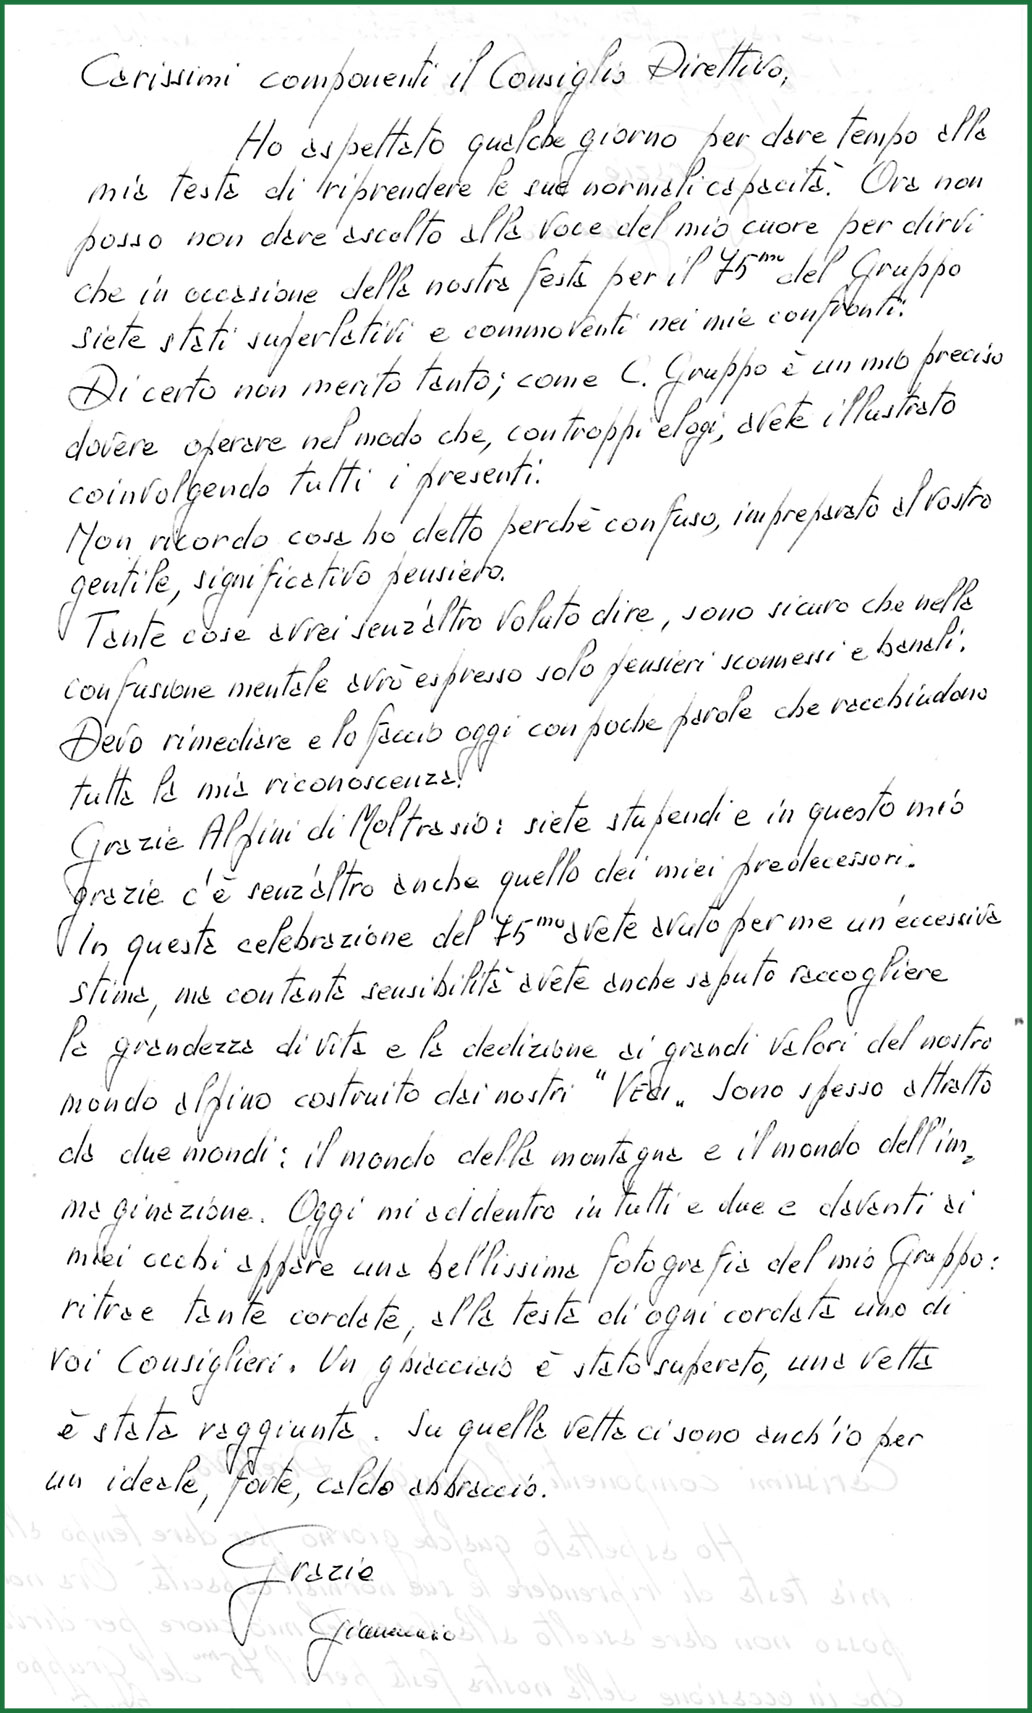 Carissimi componenti il Consiglio Direttivo,
Ho aspettato qualche giorno per dare tempo alla
mia testa di riprendere le sue normali capacità. Ora non
posso non dare ascolto alla voce del mio cuore per dirvi
che in occasione della nostra festa per il 75mo del Gruppo
siete stati superlativi e commoventi nei mie confronti.
Di certo non merito tanto; come C. Gruppo è un mio preciso
dovere operare nel modo che, con troppi elogi, avete illustrato
coinvolgendo tutti i presenti.
Non ricordo cosa ho detto perchè confuso, impreparato al vostro
gentile, significativo pensiero.
Tante cose avrei senz'altro voluto dire, sono sicuro che nella
confusione mentale avrò espresso solo pensieri sconnessi e banali.
Devo rimediare e lo faccio oggi con poche parole che racchiudono
tutta la mia riconoscenza!
Grazie Alpini di Moltrasio: siete stupendi e in questo mio
grazie c'è senz'altro anche quello dei miei predecessori.
In questa celebrazione del 75mo avete avuto per me un'eccessiva
stima, ma con tanta sensibilità avete anche saputo raccogliere
la grandezza di vita e la dedizione ai grandi valori del nostro
mondo alpino costruito dai nostri "VECI„ Sono spesso attratto
da due mondi: il mondo della montagna e il mondo dell'im=
maginazione. Oggi mi addentro in tutti e due e davanti ai
miei occhi appare una bellissima fotografia del mio Gruppo:
ritrae tante cordate, alla testa di ogni cordata uno di
voi Consiglieri. Un ghiacciaio è stato superato, una vetta
è stata raggiunta. Su quella vetta ci sono anch'io per
un ideale, forte, caldo abbraccio.
Grazie